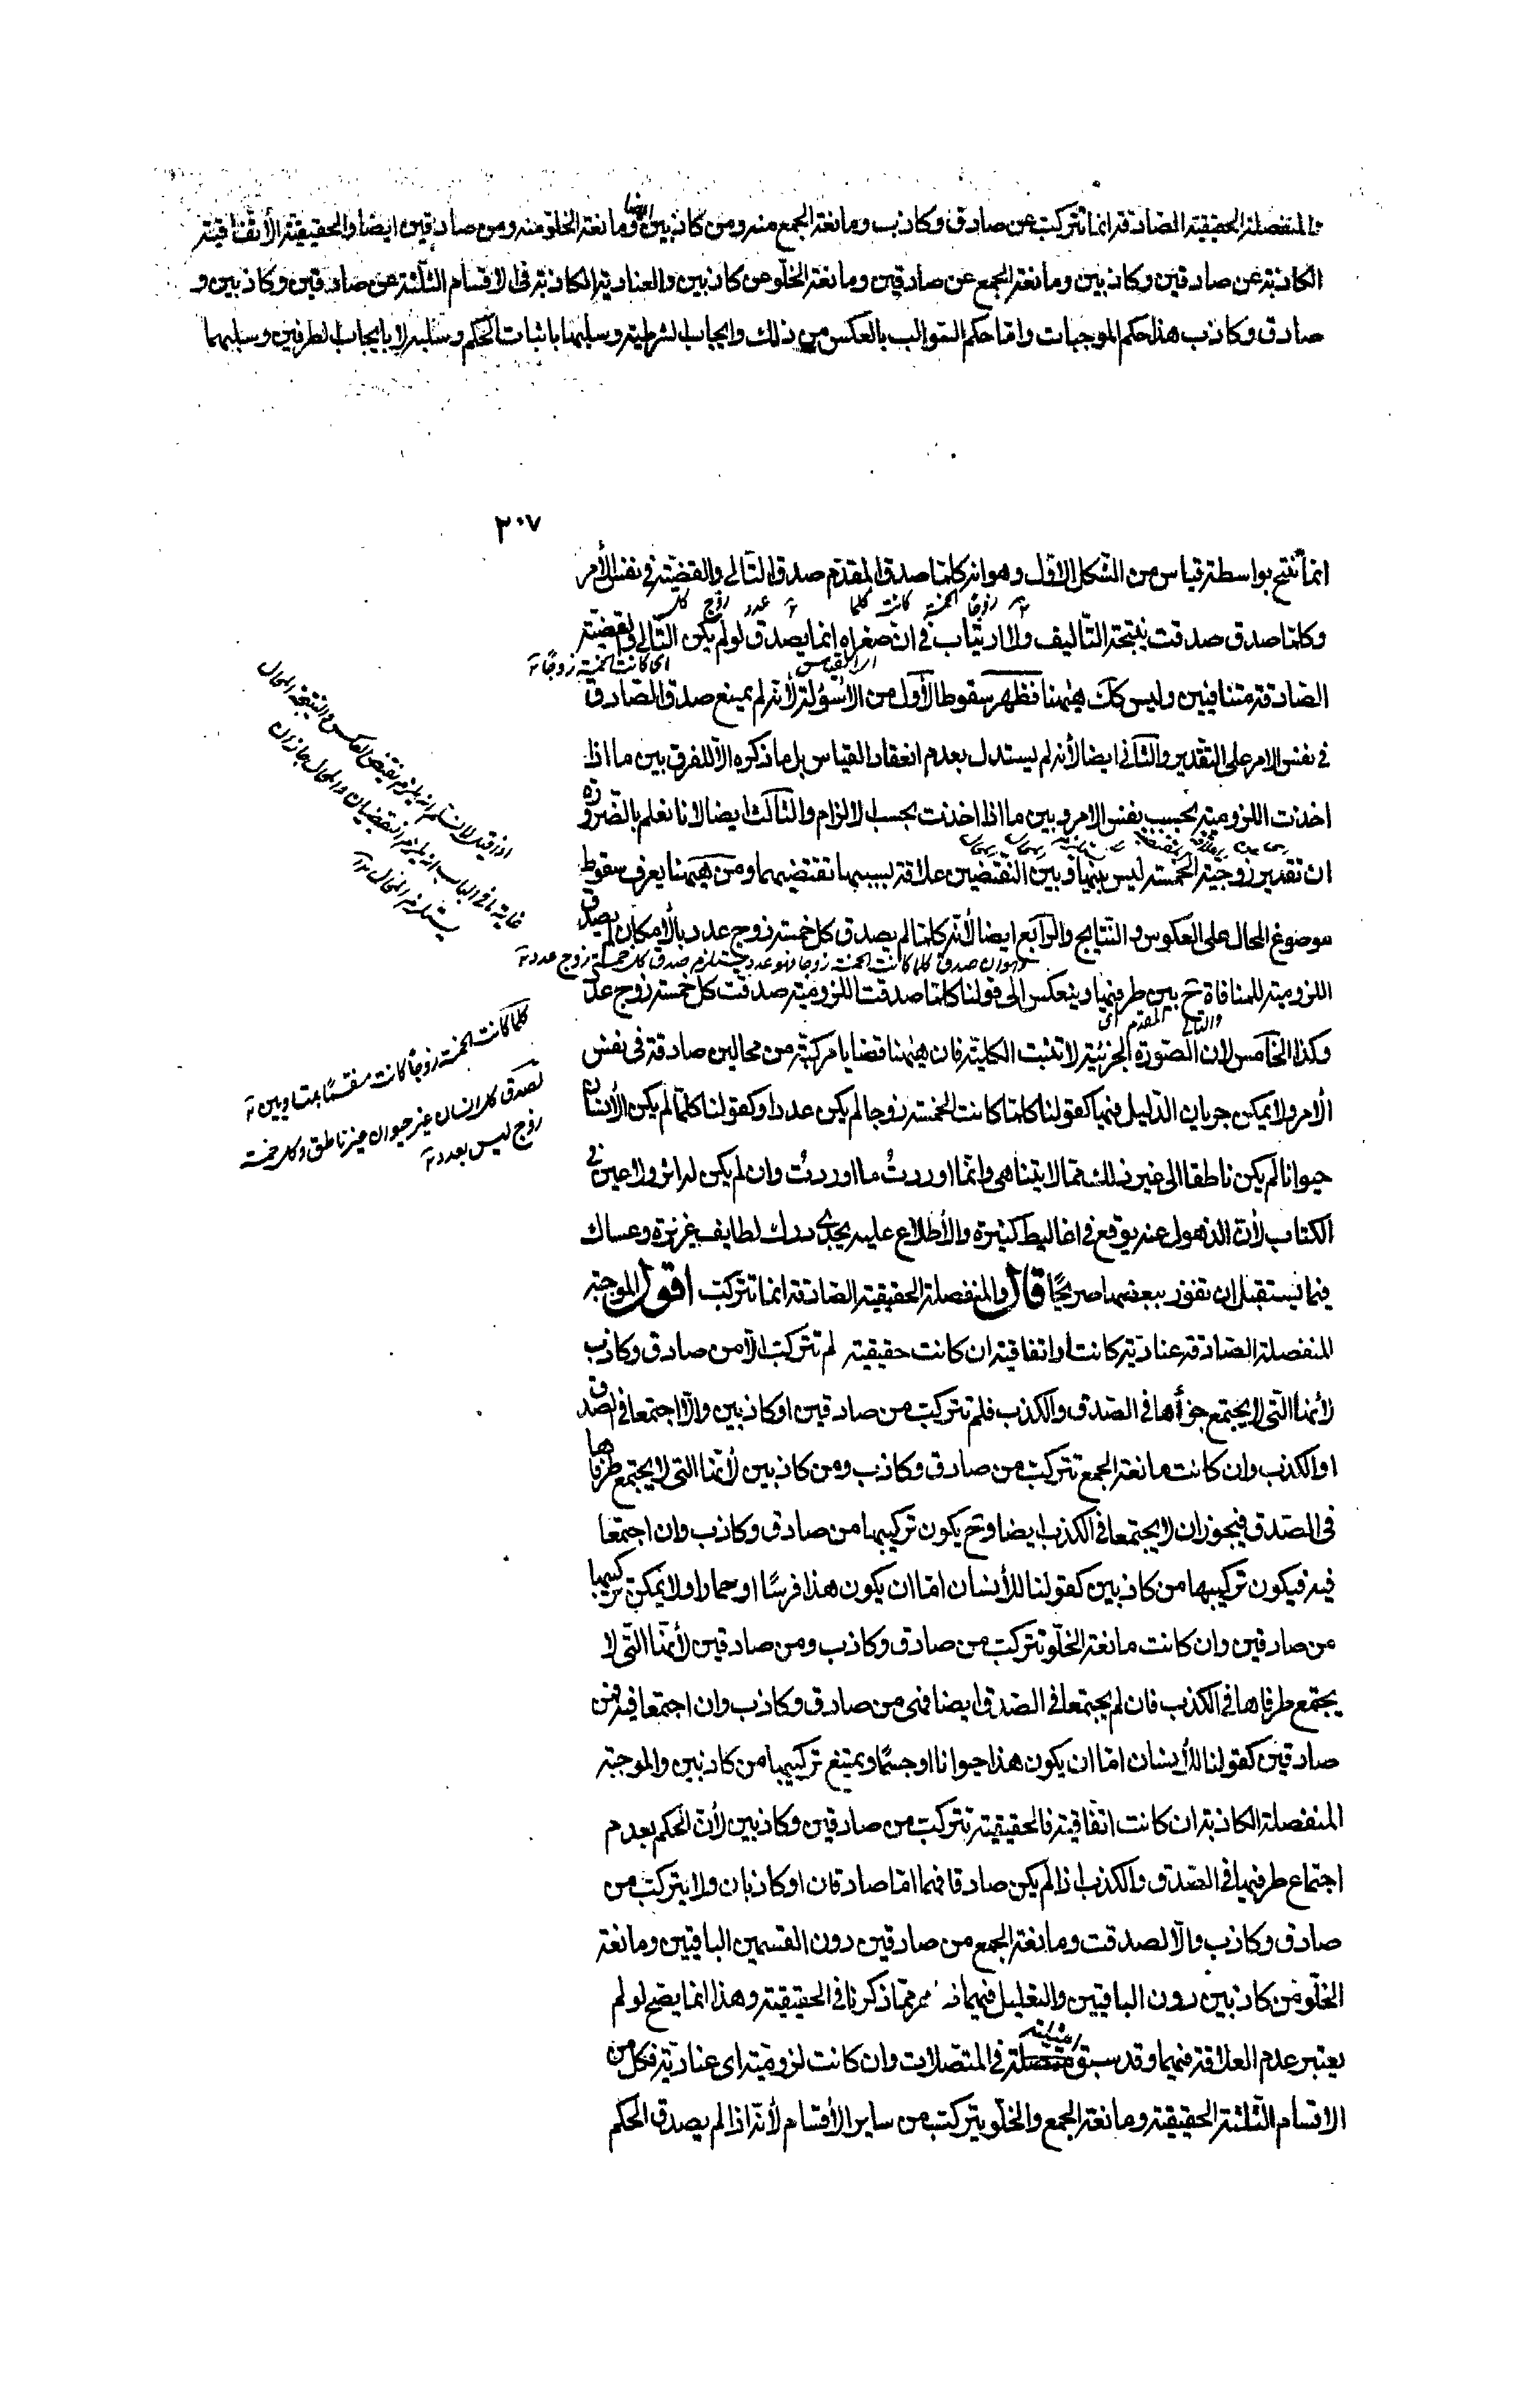 المنفصلة الحقيقية الصادقة انما تتركب عن صادق وكاذب ومانعة الجمع منه ومن كاذبين ومانعة الخلو منه ومن صادقين ايضا والحقيقية الاتفاقية
الكاذبة عن صادقين وكاذبين ومانعة الجمع عن صادقين ومانعة الخلو عن كاذبين والعنادية الكاذبة فى الاقسام الثلثة عن صادقين وكاذبين و
صادق وكاذب هذا حكم الموجبات واما حكم السوالب بالعكس من ذلك وايجاب الشرطية وسلبها باثبات الحكم وسلبه لا بايجاب الطرفين وسلبهما
٣٠٧
انما تنتج بواسطة قياس من الشكل الاول وهو انه كلما صدق المقدم صدق التالى والقضية فى نفس الأمر
كلما كانت الخمسة زوجا كل زوج عدد
وكلما صدق صدقت نتيجة التاليف ولا ارتياب فى ان صغراه انما يصدق لو لم يكن التالى والقضية
اى كانت الخمسة زوجا
الصادقة متنافيين وليس كك هيهنا فظهر سقوط الأول من الأسؤلة لأنه لم يمنع صدق الصادق
فى نفس الامر على التقدير والثانى ايضا لأنه لم يستدل بعدم انعقاد القياس بل ما ذكره الا للفرق بين ما اذا
اخذت اللزومية بحسب نفس الامر وبين ما اذا اخذت بحسب الالزام والثالث ايضا لانا نعلم بالضرورة
ان تقدير زوجية الخمسة ليس بينها وبين النقيضين علاقة بسببها تقتضيهما ومن هيهنا يعرف سقوط
موضوع المحال على العكوس والنتايج والرابع ايضا لأنه كلما لم يصدق كل خمسة زوج عدد بالأمكان لم يصدق
وهو ان صدق كلما كانت الخمسة زوجا فهو عدد يستلزم صدق كل خمسة زوج عدد
اللزومية للمنافاة ح بين طرفيها وينعكس الى قولنا كلما صدقت اللزومية صدقت كل خمسة زوج عدد
اى المقدم والتالى
وكذا الخامس لان الصورة الجزئية لا تثبت الكلية فان هيهنا قضايا مركبة من محالين صادقة فى نفس
الأمر ولا يمكن جريان الدليل فيها كقولنا كلما كانت الخمسة زوجا لم يكن عددا وكقولنا كلما لم يكن الأنسان
حيوانا لم يكن ناطقا الى غير ذلك مما لا يتناهى وانما اوردت ما اوردت وان لم يكن له اثر ولا عين فى
الكتاب لأن الذهول عنه يوقع فى اغاليط كثيرة والأطلاع عليه يجدى درك لطايف غزيرة وعساك
فيما تستقبل ان تفوز ببعضها صريحا قال والمنفصلة الحقيقية الصادقة انما تتركب اقول الموجبة
المنفصلة الصادقة عنادية كانت او اتفاقية ان كانت حقيقية لم تتركب الا من صادق وكاذب
لأنها التى لا يجتمع جزأها فى الصدق والكذب فلم تتركب من صادقين او كاذبين والا اجتمعا فى الصدق
او الكذب وان كانت مانعة الجمع تتركب من صادق وكاذب ومن كاذبين لأنها التى لا يجتمع طرفاها
فى الصدق فيجوز ان لا يجتمعا فى الكذب ايضا وح يكون تركيبها من صادق وكاذب وان اجتمعا
فيه فيكون تركيبها من كاذبين كقولنا للأنسان اما ان يكون هذا فرسا او حمارا ولا يمكن تركيبها
من صادقين وان كانت مانعة الخلو تتركب من صادق وكاذب ومن صادقين لأنها التى لا
يجتمع طرفاها فى الكذب فان لم يجتمعا فى الصدق ايضا فهى من صادق وكاذب وان اجتمعا فيه فمن
صادقين كقولنا للأنسان اما ان يكون هذا حيوانا او جسما ويمتنع تركيبها من كاذبين والموجبة
المنفصلة الكاذبة ان كانت اتفاقية فالحقيقية تتركب من صادقين وكاذبين لأن الحكم بعدم
اجتماع طرفيها فى الصدق والكذب اذا لم يكن صادقا فهما اما صادقان او كاذبان ولا يتركب من
صادق وكاذب والا لصدقت ومانعة الجمع من صادقين دون القسمين الباقيين ومانعة
الخلو من كاذبين دون الباقيين والتعليل فيهما مر مما ذكرنا فى الحقيقية وهذا انما يصح لو لم
يعتبر عدم العلاقة فيهما وقد سبق امثلته فى المتصلات وان كانت لزومية اى عنادية فكل من
الاقسام الثلثة الحقيقية ومانعة الجمع والخلو يتركب من ساير الأقسام لأنه اذا لم يصدق الحكم
كلما كانت الخمسة زوجا كانت منقسمة بمتساويين
لصدق كل انسان غير حيوان غير ناطق وكل خمسة
زوج ليس بعدد